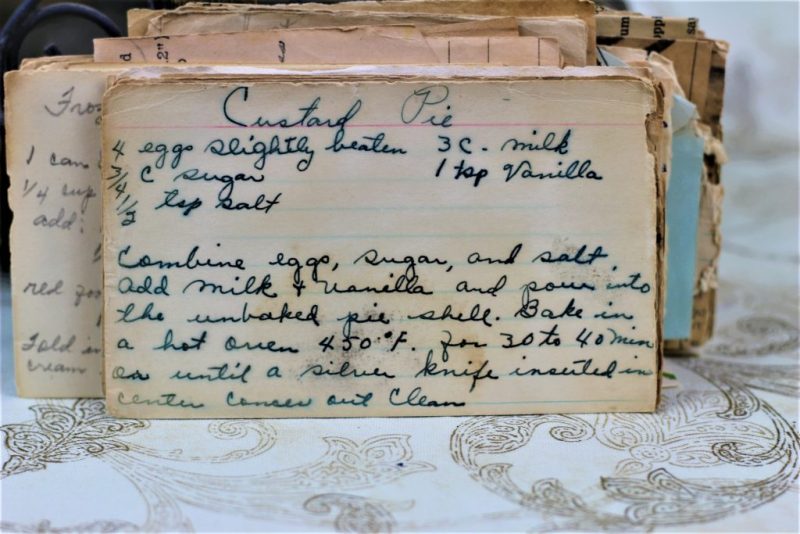 Custard Pie
4 eggs slightly beaten 3 C. milk
3/4 C sugar 1 tsp Vanilla
1/2 tsp salt
Combine eggs, sugar, and salt
add milk + vanilla and pour into
the unbaked pie shell. Bake in
a hot oven 450°F. for 30 to 40 min
or until a silver knife inserted in
center comes out clean
Fros
1 can
1/4 cup
add:
red
Fold in
cream
um